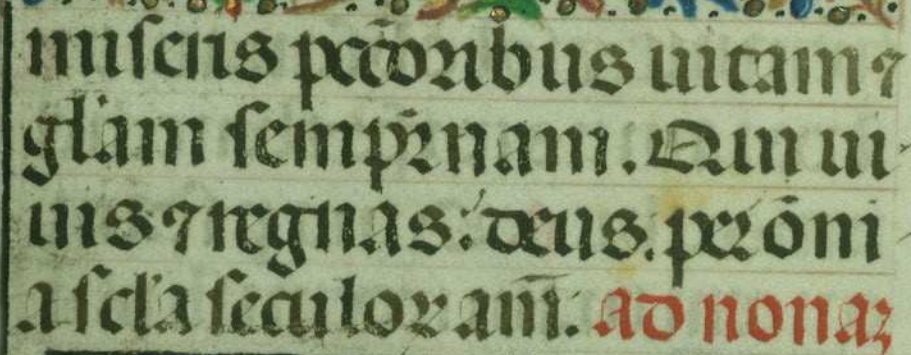 miseris pctōribus uitam ⁊
gl'am semp̄rnam. Qui ui
uis ⁊ regnas: deus. per ōni
a scl'a seculoꝝ am̄. ad nonaꝫ